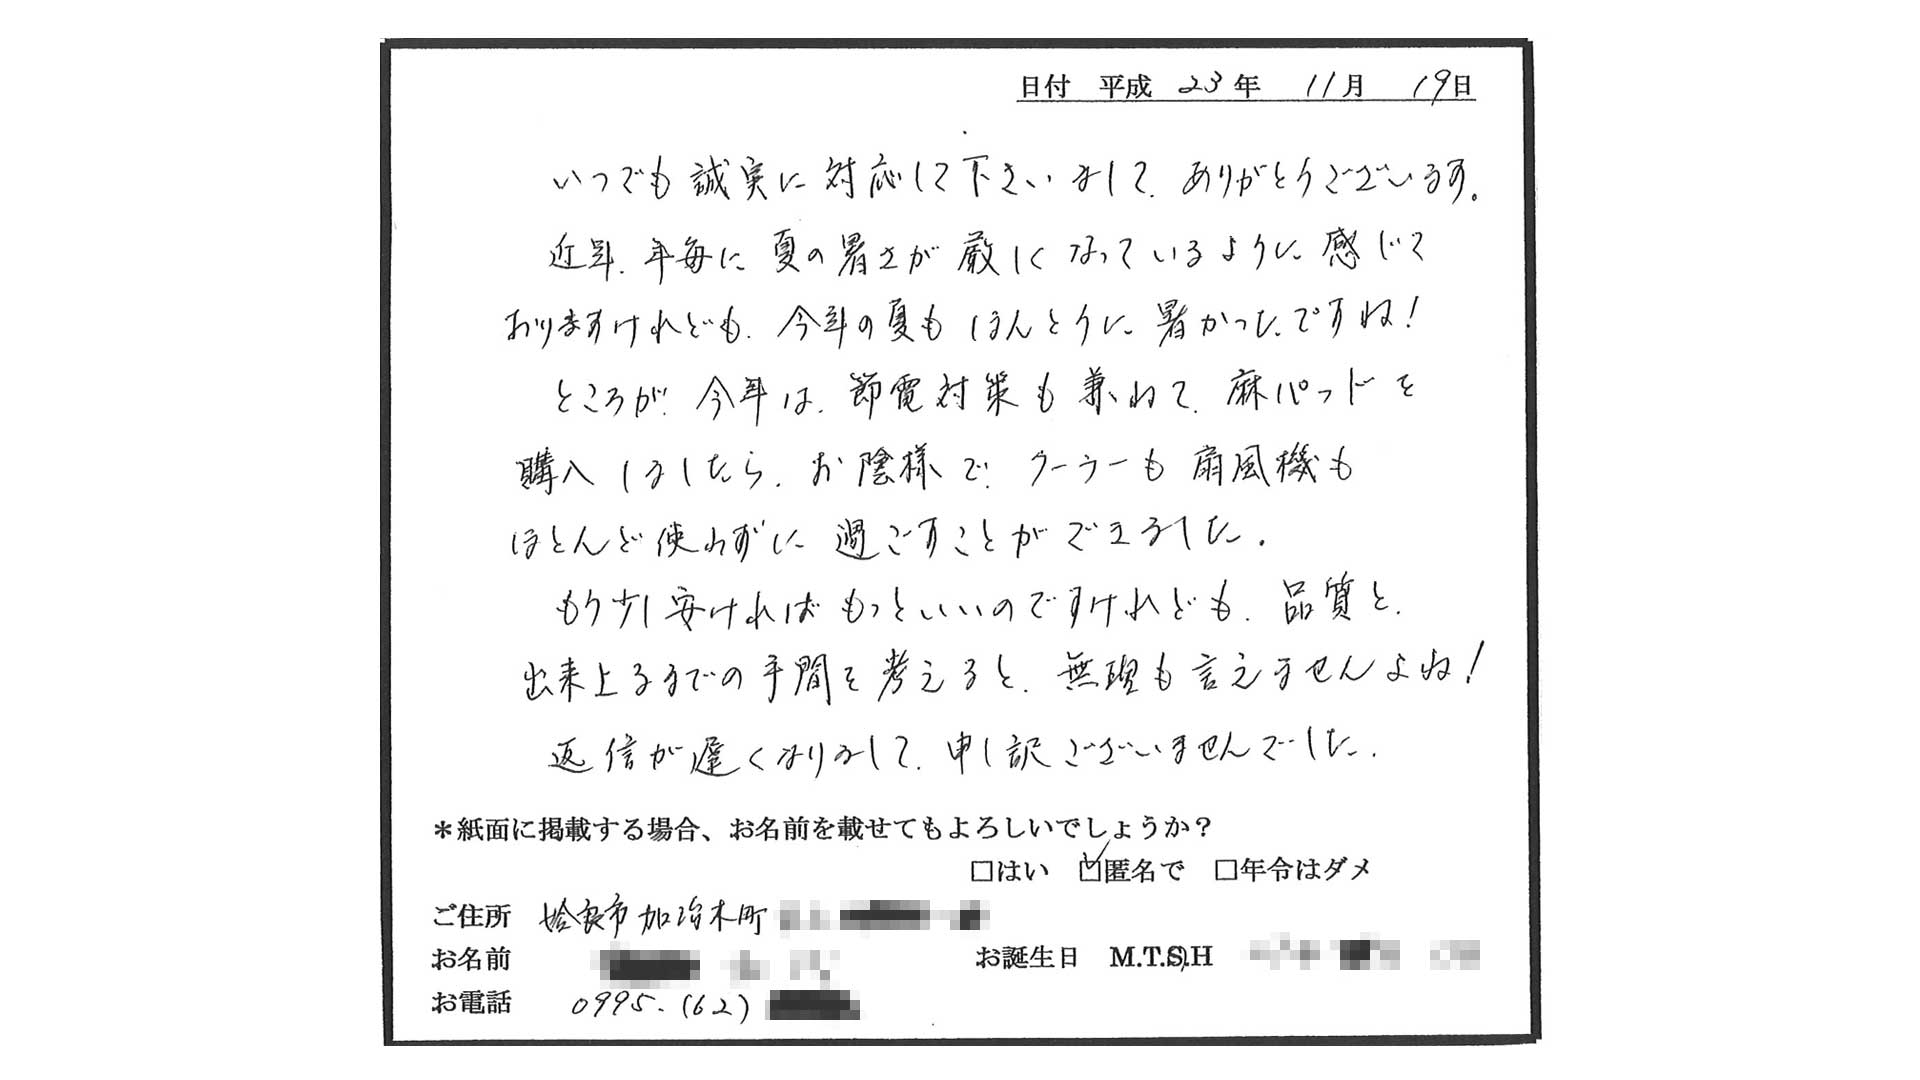 日付 平成 23年 11月 19日
いつでも誠実に対応して下さいまして、ありがとうございます。
近年、年毎に夏の暑さが厳しくなっているように感じて
おりますけれども、今年の夏もほんとうに暑かったですね!
ところが、今年は、節電対策も兼ねて、麻パッドを
購入しましたら、お陰様で、クーラーも扇風機も
ほとんど使わずに過ごすことができました。
もう少し安ければもっといいのですけれども、品質と、
出来上るまでの手間を考えると、無理も言えませんよね!
返信が遅くなりまして、申し訳ございませんでした。
*紙面に掲載する場合、お名前を載せてもよろしいでしょうか?
□はい ☑匿名で □年令はダメ
ご住所 姶良市加治木町
お名前 お誕生日 M.T.S.H
お電話 0995.(62)